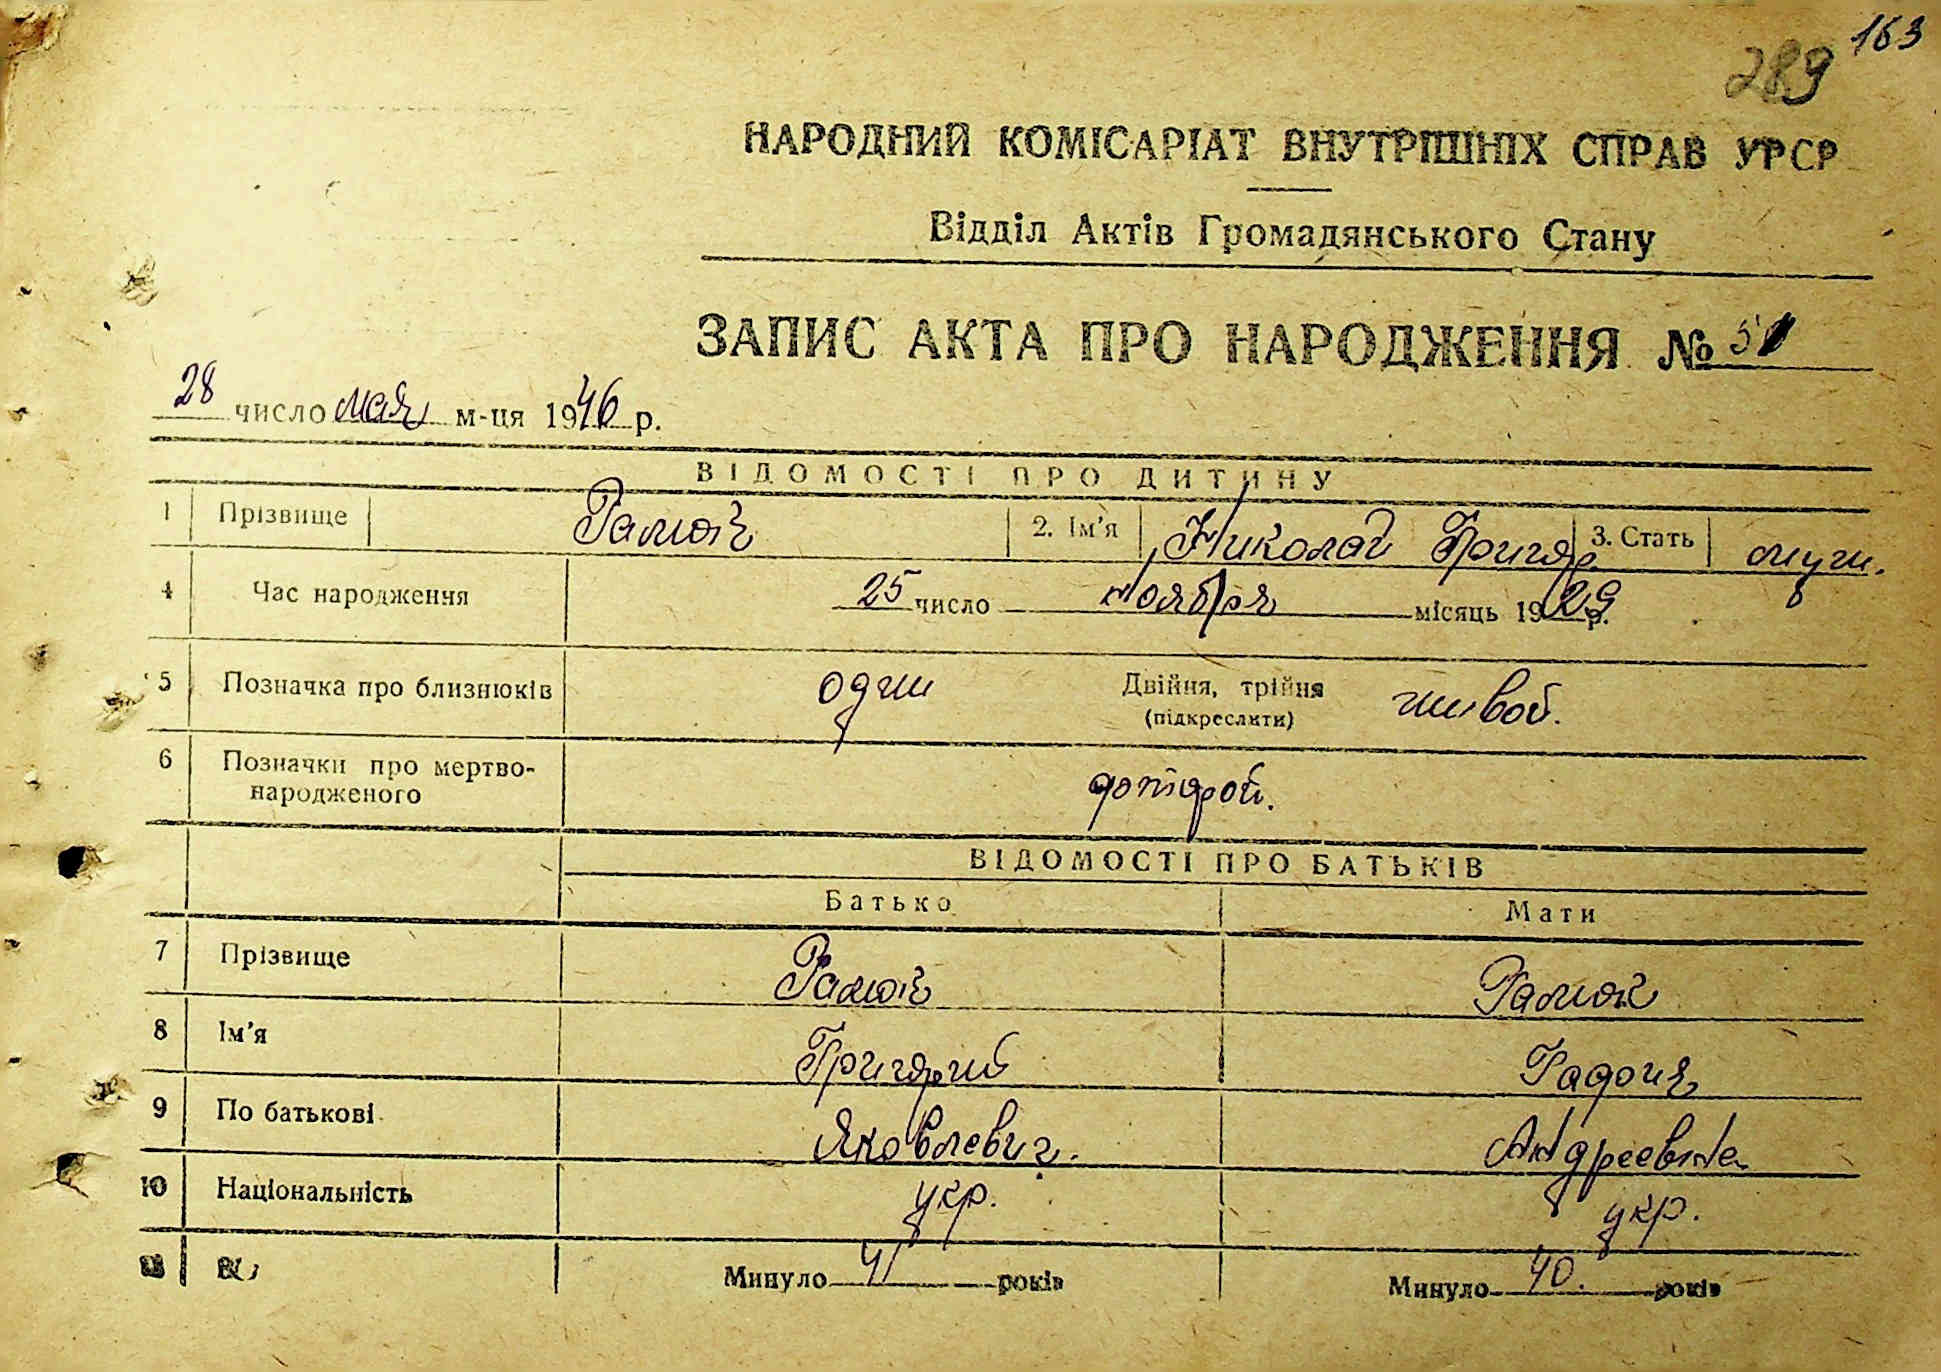 163
289
НАРОДНИЙ КОМІСАРІАТ ВНУТРІШНІХ СПРАВ УРСР
Відділ Актів Громадянського Стану
ЗАПИС АКТА ПРО НАРОДЖЕННЯ № 51
28 число мая м-ця 1946 р.
ВІДОМОСТІ ПРО ДИТИНУ
1 Прізвище 2. Ім'я Николай Григор. 3. Стать муж.
4 Час народження 25 число ноября місяць 1929 р.
5 Позначка про близнюків один Двійня, трійня живой.
(підкреслити)
6 Позначки про мертво-
народженого
ВІДОМОСТІ ПРО БАТЬКІВ
Батько Мати
7 Прізвище
8 Ім'я Григорий
9 По батькові Яковлевич. Андреевна
10 Національність укр. укр.
Минуло 41 років Минуло 40. років